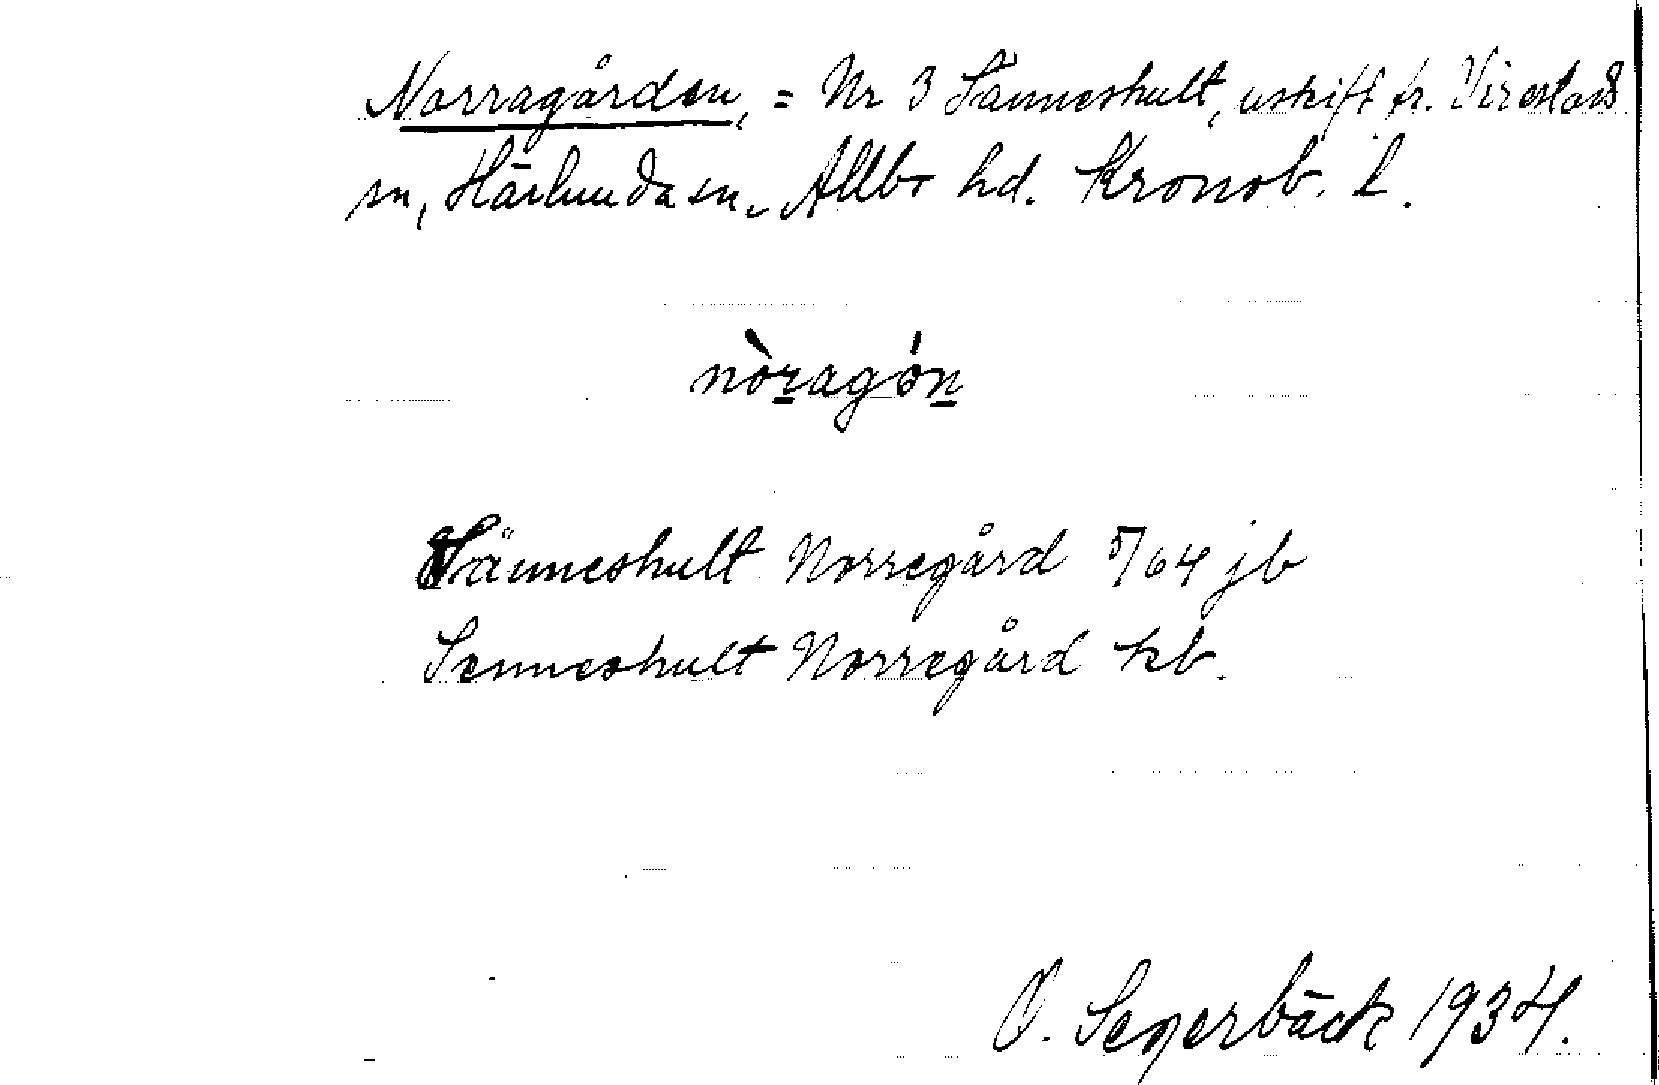 Norragården, = Nr 3 Sänneshult, utskift fr. Virestads
sn, Härlunda sn. Allbo hd. Kronob. l.
nòragón
Sänneshult Norregård 5/64 jb
Senneshult Norregård kb.
O. Segerbäck 1934.